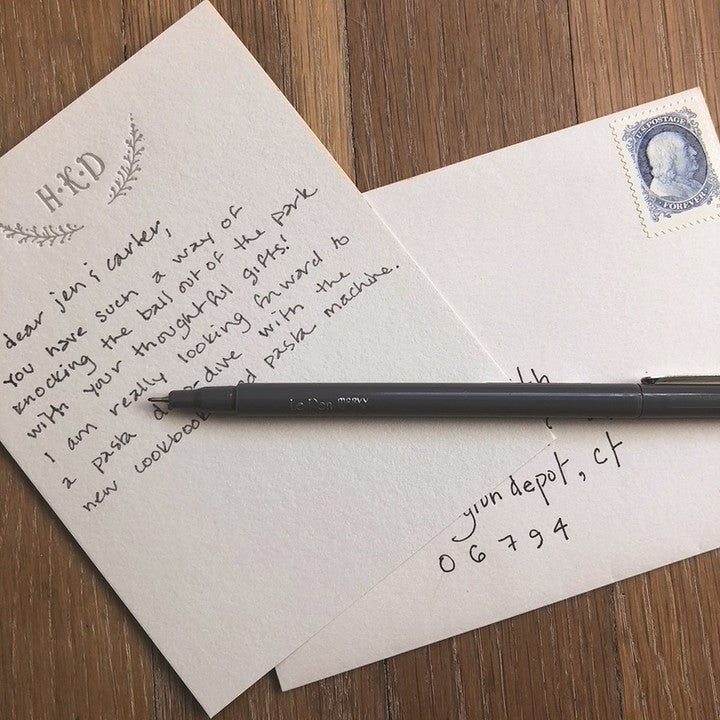 H·K·D
dear jen & carter,
you have such a way of
knocking the ball out of the park
with your thoughtful gifts!
I am really looking forward to
a pasta with the
new cookbook pasta machine.
Le Pen navy
U.S. POSTAGE
FOREVER
depot, ct
06794